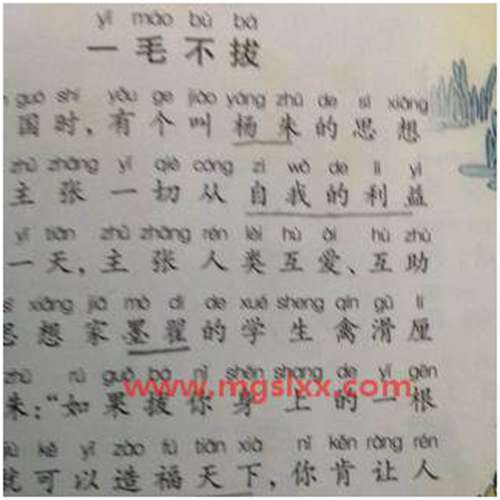 yī máo bù bá
一毛不拔
guó shí yǒu ge jiào yáng zhū de sī xiǎng
国时，有个叫杨朱的思想
zhǔ zhāng yī qiè cóng zì wǒ de lì yì
主张一切从自我的利益
yī tiān zhǔ zhāng rén lèi hù ài hù zhù
一天，主张人类互爱、互助
xiǎng jiā mò dí de xué sheng qín gǔ lí
思想家墨翟的学生禽滑厘
zhū rú guǒ bá nǐ shēn shang de yī gēn
朱：“如果拔你身上的一根
www.mgslxx.com
jiù kě yǐ zào fú tiān xià nǐ kěn ràng rén
就可以造福天下，你肯让人